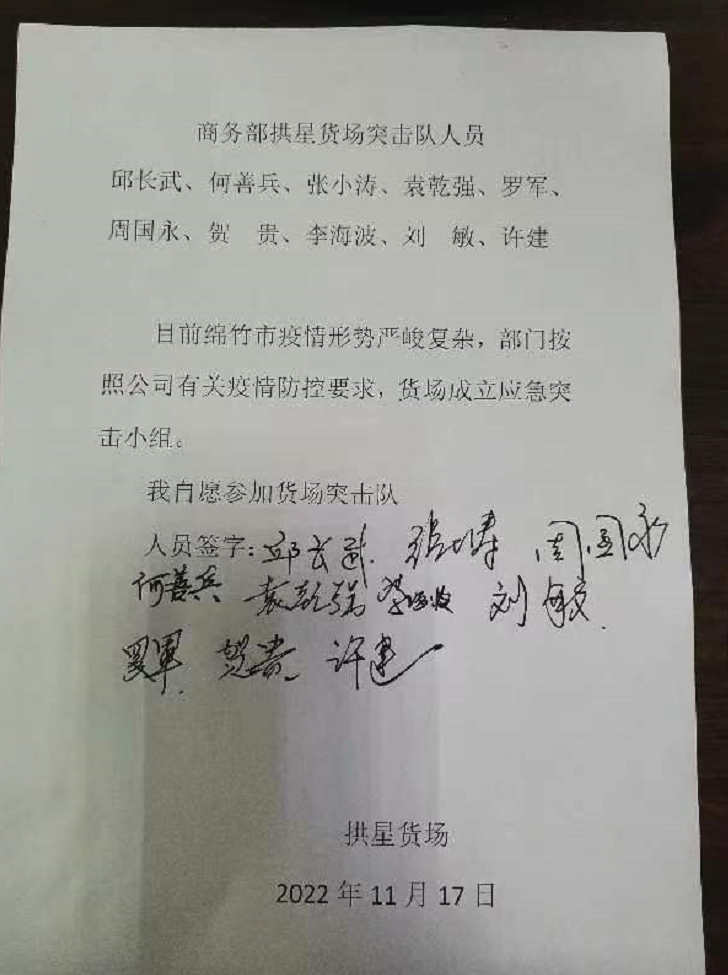 商务部拱星货场突击队人员
邱长武、何善兵、张小涛、袁乾强、罗军、
周国永、贺　贵、李海波、刘　敏、许建
目前绵竹市疫情形势严峻复杂，部门按
照公司有关疫情防控要求，货场成立应急突
击小组。
我自愿参加货场突击队
人员签字：邱长武 张小涛 周国永
何善兵 袁乾强 李海波 刘敏
罗军 贺贵 许建
拱星货场
2022年11月17日